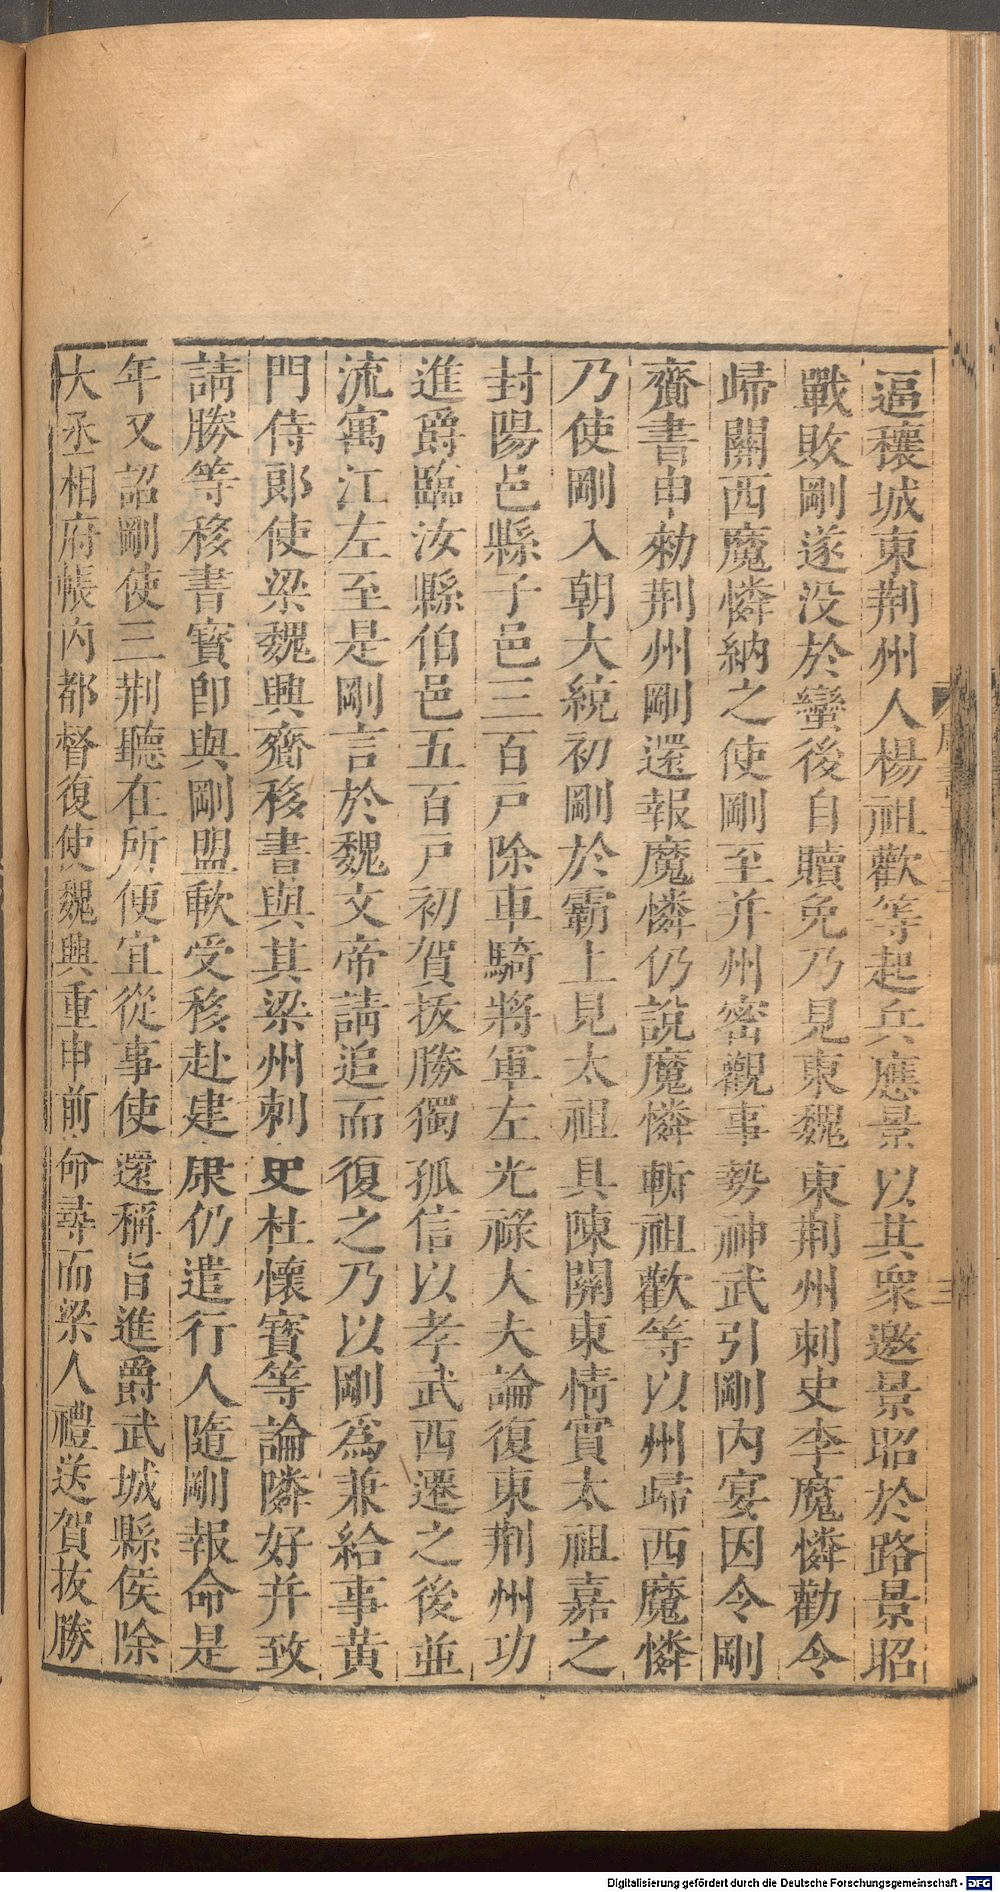 逼穰城東荆州人楊祖歡等起兵應景以其衆邀景昭於路景昭
戰敗剛遂没於蠻後自贖免乃見東魏東荆州刺史李魔憐勸令
歸關西魔憐納之使剛至并州密觀事勢神武引剛内宴因令剛
齎書申勑荆州剛還報魔憐仍說魔憐斬祖歡等以州歸西魔憐
乃使剛入朝大統初剛於霸上見太祖具陳關東情實太祖嘉之
封陽邑縣子邑三百戸除車騎將軍左光祿大夫論復東荆州功
進爵臨汝縣伯邑五百戸初賀拔勝獨孤信以孝武西遷之後並
流寓江左至是剛言於魏文帝請追而復之乃以剛爲兼給事黃
門侍郎使梁魏興齎移書與其梁州刺史杜懷寳等論隣好并致
請勝等移書寳卽與剛盟歃受移赴建康仍遣行人隨剛報命是
年又詔剛使三荆聽在所便宜從事使還稱旨進爵武城縣侯除
大丞相府帳内都督復使魏興重申前命尋而梁人禮送賀拔勝
三
Digitalisierung gefördert durch die Deutsche Forschungsgemeinschaft - DFG